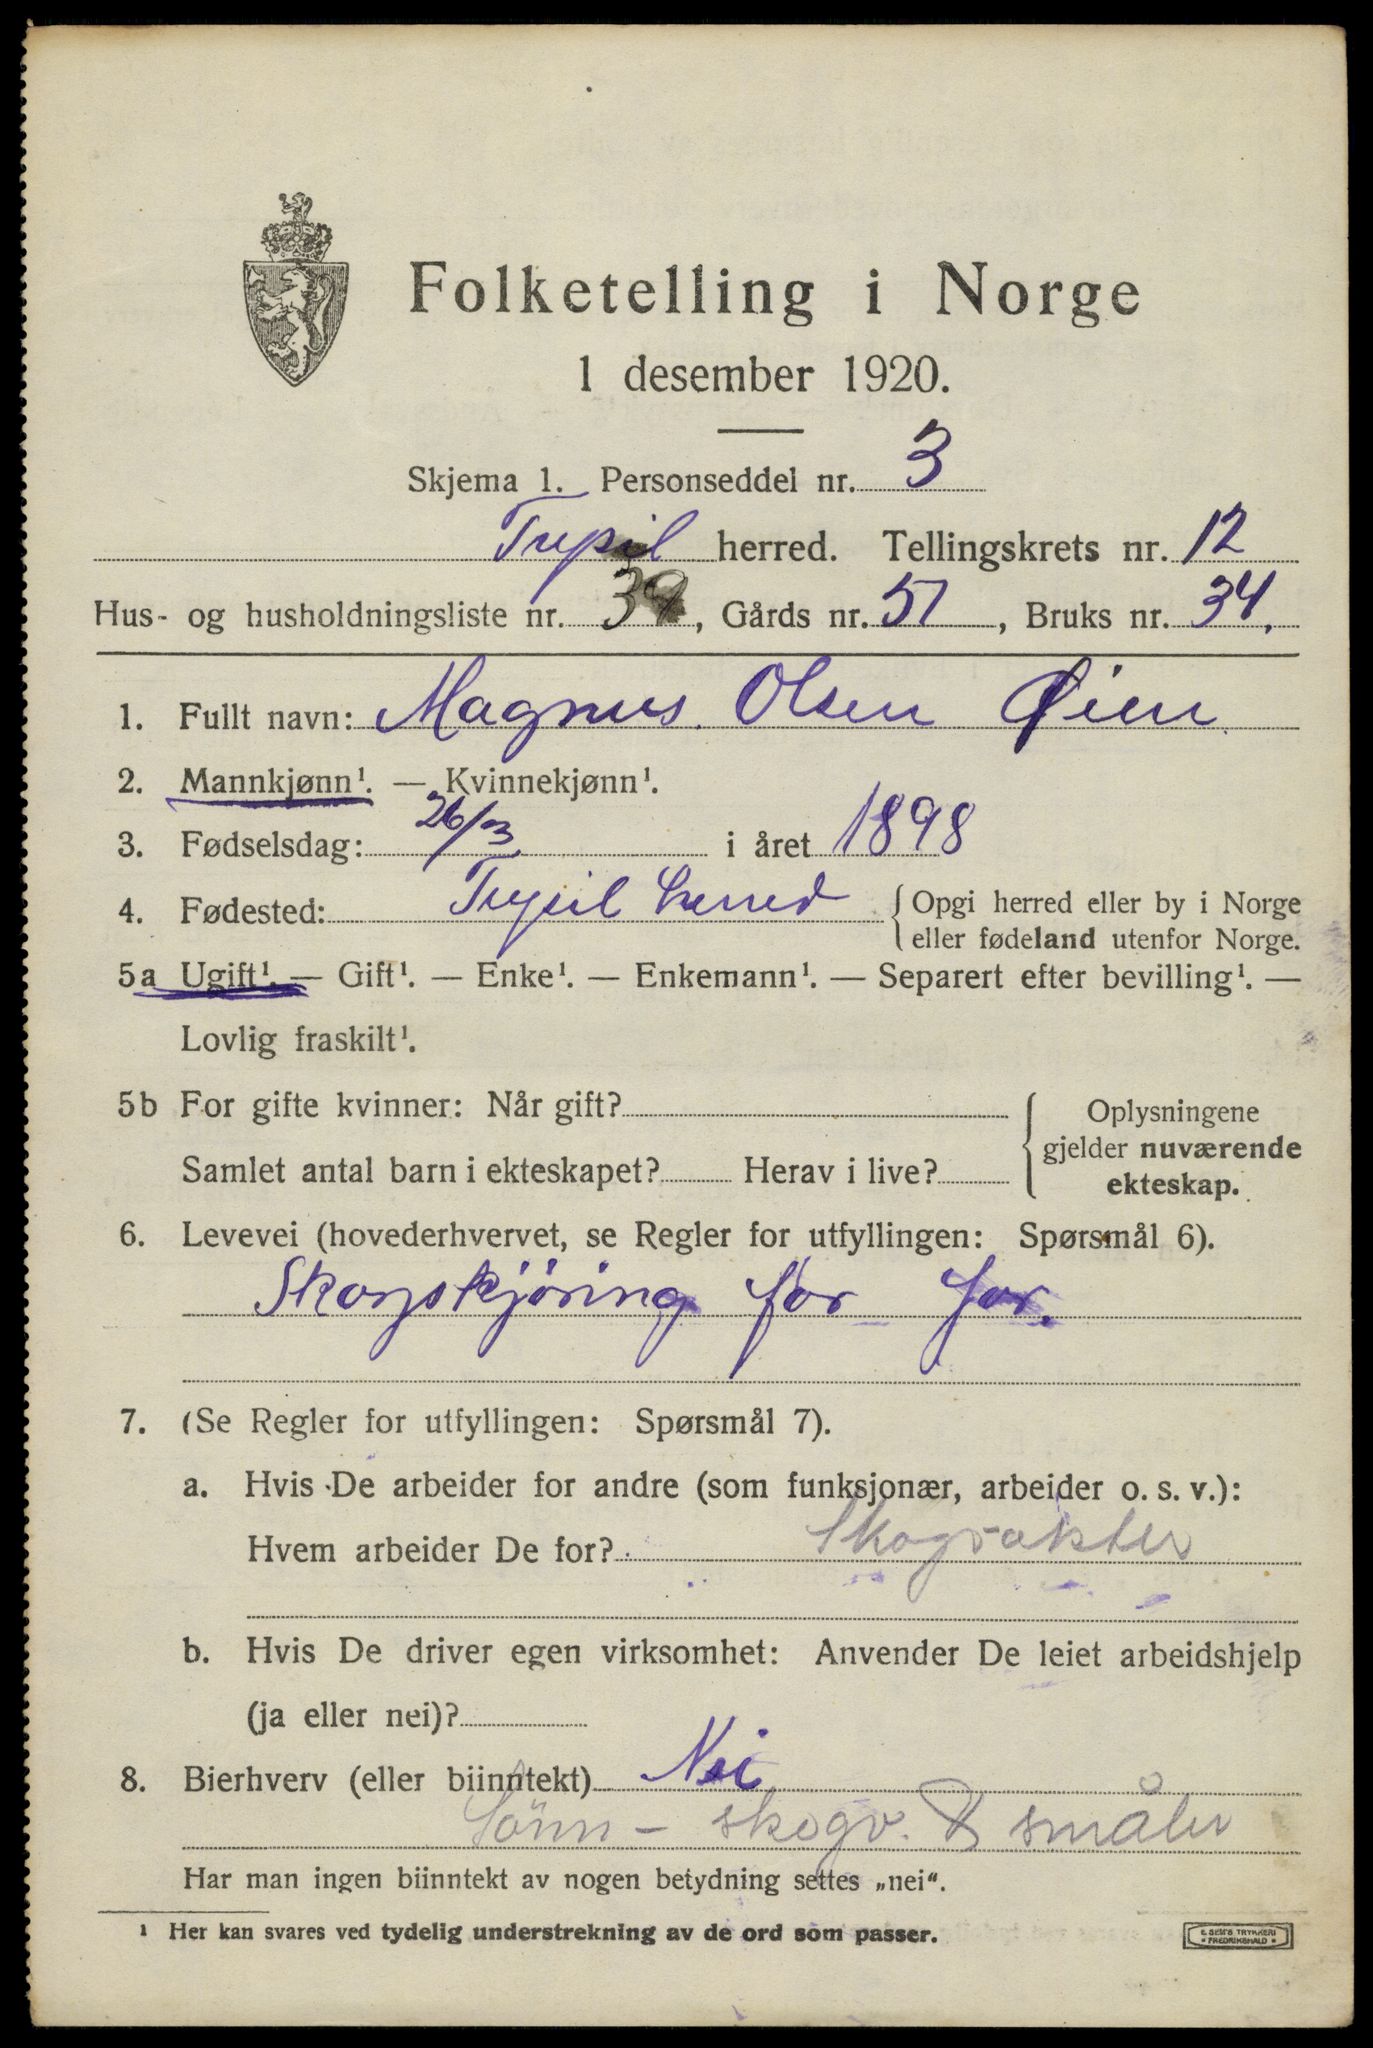 Folketelling i Norge
1 desember 1920.
Skjema 1. Personseddel nr. 3
Trysil herred. Tellingskrets nr. 12
Hus- og husholdningsliste nr. 39, Gårds nr. 51, Bruks nr. 34.
1. Fullt navn: Magnus Olsen Øien
2. Mannkjønn¹. — Kvinnekjønn¹.
3. Fødselsdag: 26/3 i året 1898
4. Fødested: Trysil herred { Opgi herred eller by i Norge
eller fødeland utenfor Norge.
5a Ugift¹. — Gift¹. — Enke¹. — Enkemann¹. — Separert efter bevilling¹. —
Lovlig fraskilt¹.
5b For gifte kvinner: Når gift? { Oplysningene
gjelder nuværende
Samlet antal barn i ekteskapet? Herav i live? ekteskap.
6. Levevei (hovederhvervet, se Regler for utfyllingen: Spørsmål 6).
Skogskjöring for far.
7. (Se Regler for utfyllingen: Spørsmål 7).
a. Hvis De arbeider for andre (som funksjonær, arbeider o. s. v.):
Hvem arbeider De for? Skogvakter
b. Hvis De driver egen virksomhet: Anvender De leiet arbeidshjelp
(ja eller nei)?
8. Bierhverv (eller biinntekt) Nei
Sönn - skogv. & småbr
Har man ingen biinntekt av nogen betydning settes „nei“.
¹ Her kan svares ved tydelig understrekning av de ord som passer.
E. SEM'S TRYKKERI
FREDRIKSHALD